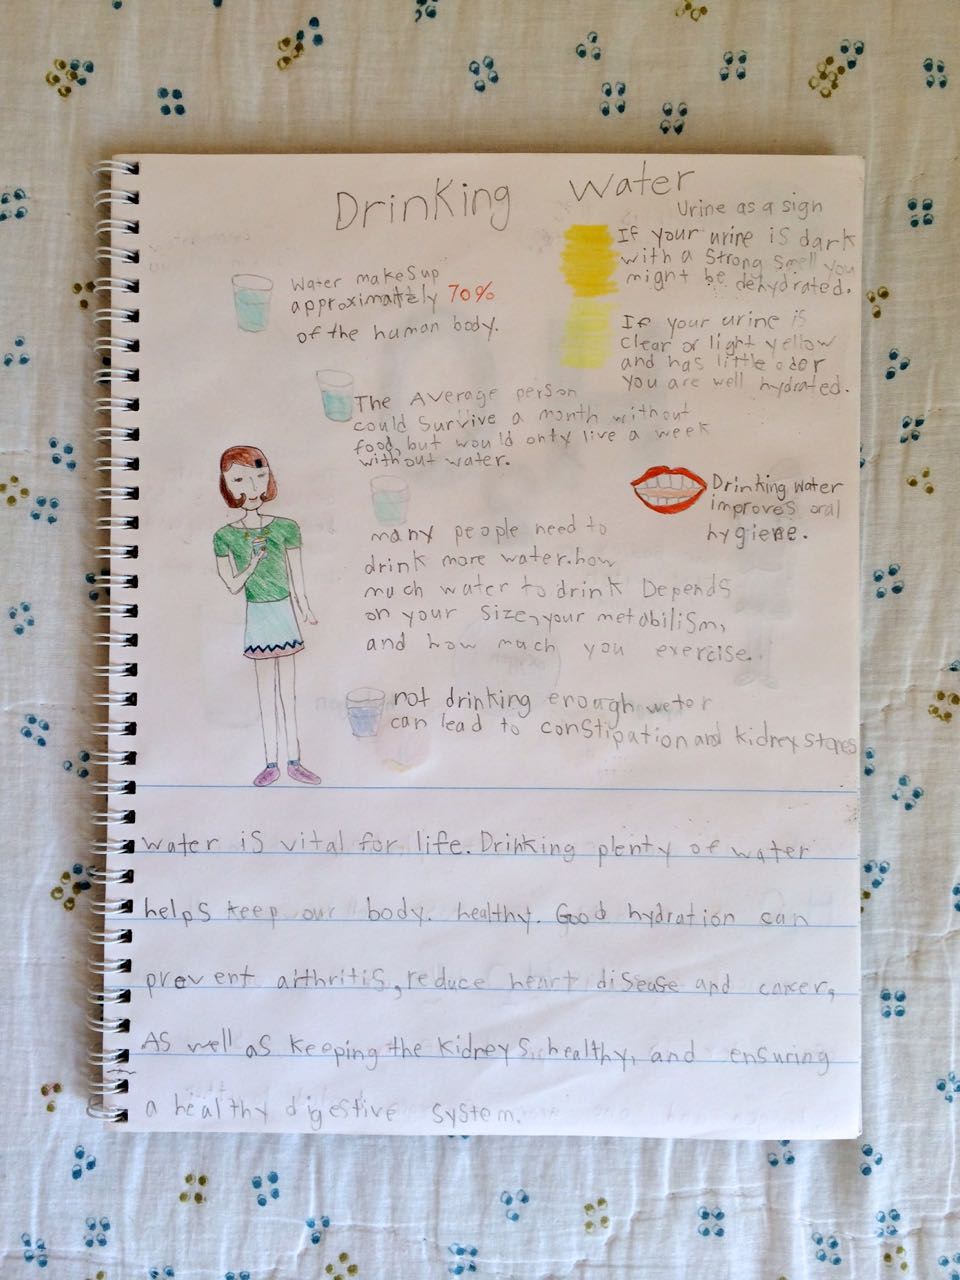 Drinking Water
Urine as a sign
If your urine is dark
with a strong smell you
might be dehydrated.
If your urine is
clear or light yellow
and has little oder
you are well hydrated.
Water makes up
approximately 70%
of the human body.
The Average person
could survive a month without
food, but would only live a week
without water.
Drinking water
improves oral
hygiene.
many people need to
drink more water. how
much water to drink Depends
on your size, your metabilism,
and how much you exercise.
not drinking enough water
can lead to constipation and kidney stones
water is vital for life. Drinking plenty of water
helps keep our body. healthy. Good hydration can
prevent arthritis, reduce heart disease and cancer,
As well as keeping the kidneys, healthy, and ensuring
a healthy digestive system.